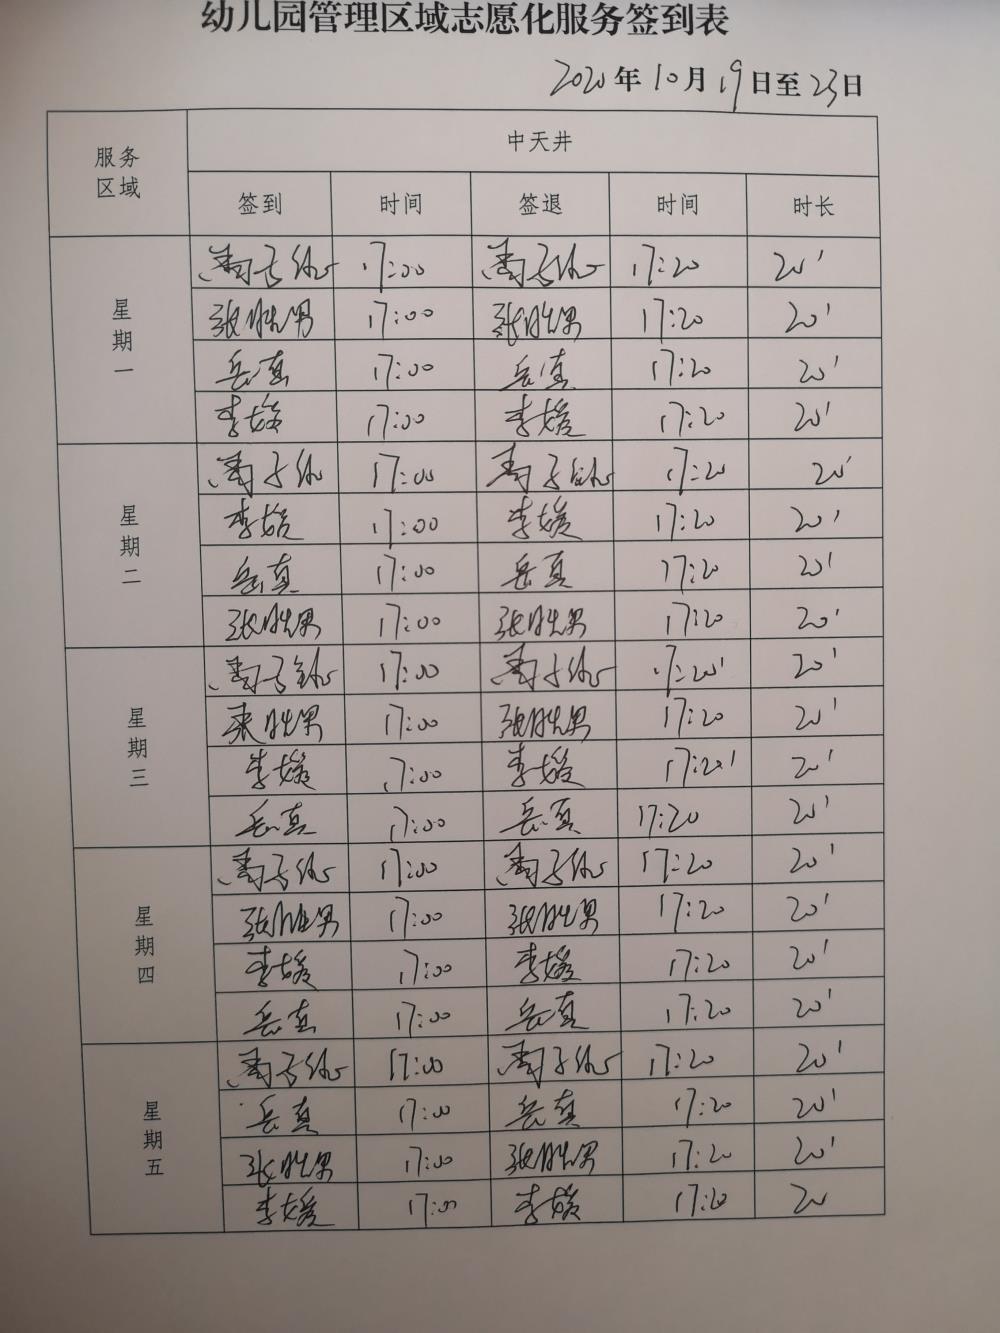 幼儿园管理区域志愿化服务签到表
2020年10月19日至23日
服务区域 中天井
签到 时间 签退 时间 时长
星期一
17:00 17:20 20'
张胜男 17:00 张胜男 17:20 20'
岳真 17:00 岳真 17:20 20'
李媛 17:00 李媛 17:20 20'
星期二
17:00 17:20 20'
李媛 17:00 李媛 17:20 20'
岳真 17:00 岳真 17:20 20'
张胜男 17:00 张胜男 17:20 20'
星期三
17:00 17:20' 20'
胜男 17:00 张胜男 17:20 20'
李媛 17:00 李媛 17:20' 20'
岳真 17:00 岳真 17:20 20'
星期四
17:00 17:20 20'
张胜男 17:00 张胜男 17:20 20'
李媛 17:00 李媛 17:20 20'
岳真 17:00 岳真 17:20 20'
星期五
17:00 17:20 20'
岳真 17:00 岳真 17:20 20'
张胜男 17:00 张胜男 17:20 20'
李媛 17:00 李媛 17:20 20